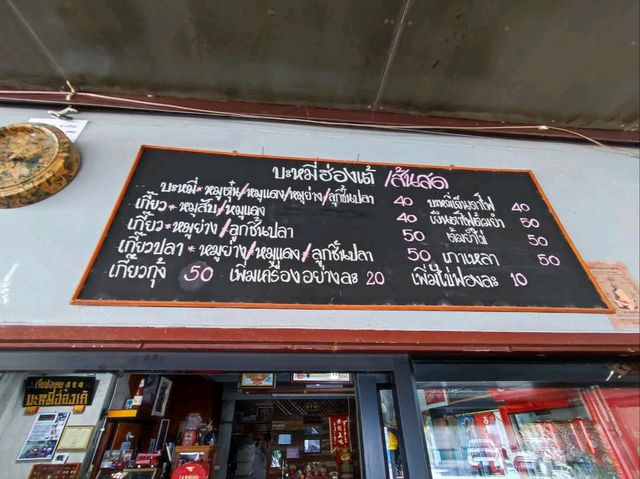 บะหมี่ฮ่องเต้ /เส้นสด
บะหมี่*หมูตุ๋น/หมูแดง/หมูย่าง/ลูกชิ้นปลา 40
เกี๊ยว*หมูสับ/หมูแดง 40
เกี๊ยว*หมูย่าง/ลูกชิ้นปลา 50
เกี๊ยวปลา*หมูย่าง/หมูแดง*ลูกชิ้นปลา 50
เกี๊ยวกุ้ง 50 เพิ่มเครื่องอย่างละ 20
40
50
ต้มยำไข่ 50
เกาเหลา 50
เพิ่มไข่ฟองละ 10
บะหมี่ฮ่องเต้